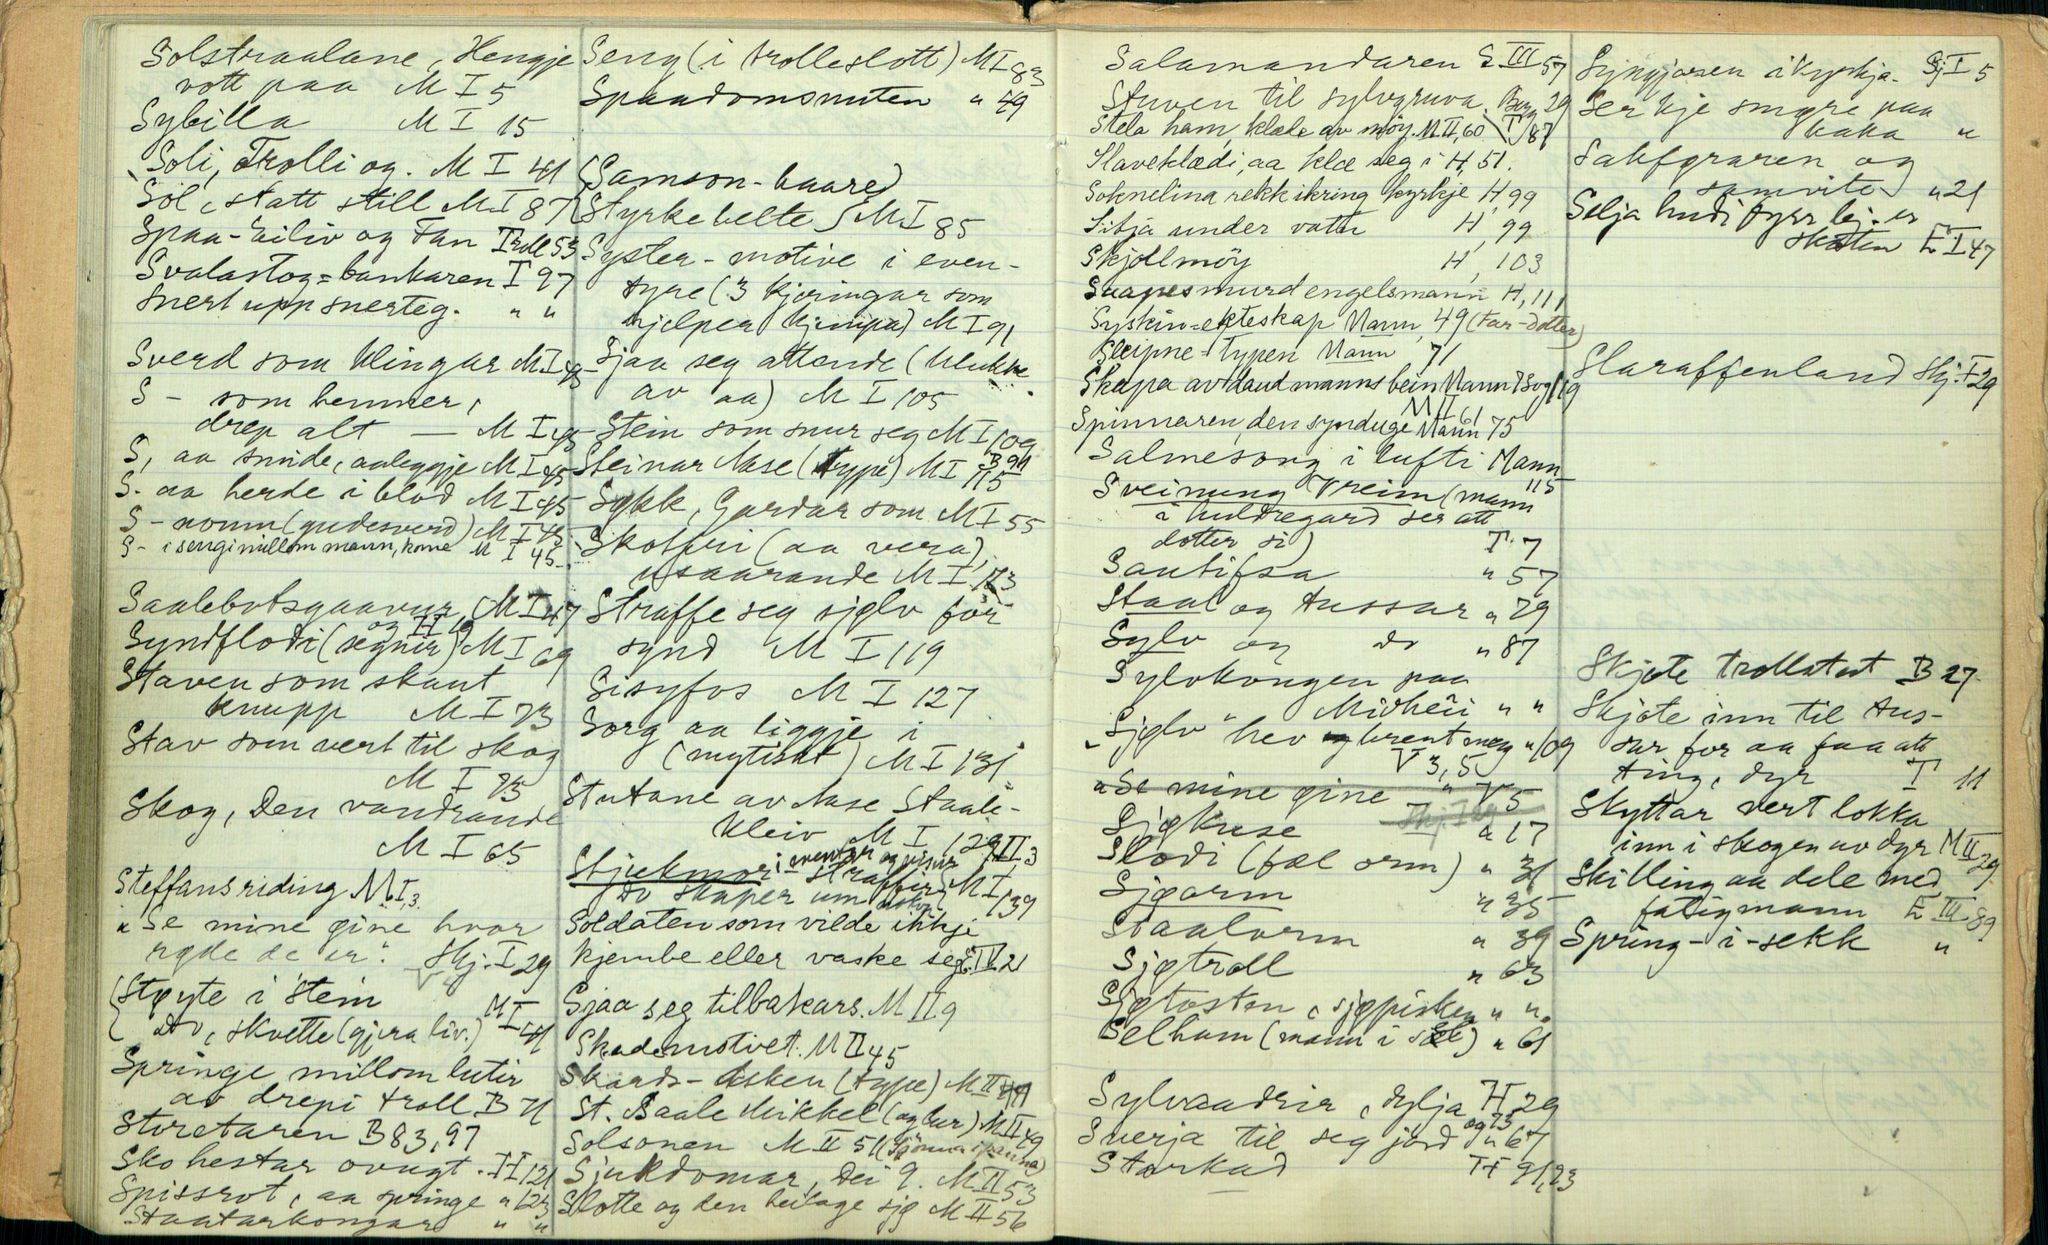 Solstraalane, Hengje
vott paa M I 5
Sybilla M I 15
Soli, Trolli og. M I 41
Sol, statt still M I 87
Spaa-Eiliv og Fan Troll 53
Svalastog=bankaren I 97
Snert upp snerteg. " "
Sverd som klingar M I 45
S - som hemner,
drep alt — M I 45
S, aa smide, aaleggje M I 45
S. aa herde i blod M I 45
S - namn (gudesverd) M I 45
S - i sengi millom mann, kone M I 45
Saalebotsgaavur, M I 47
og II
Syndflodi (segner) M I 69
Staven som skaut
knupp M I 73
Stav som vert til skog
M I 73
Skog, Den vandrande
M I 65
Steffansriding M I, 3.
"Se mine øine hvor
røde de er". Skj. I 29
Støyte i stein M I 41
do, skvette (gjera liv.)
Springe millom luter
av drepi troll B 71
Storetaren B 83, 97
Sko hestar ovugt. II 121
Spissrot, aa springe " 123
Staatarkongar " "
Seng (i trolleslott) M I 83
Spaadomsnuten " 49
(Samson-haared)
Styrkebelte M I 85
Syster-motive i even-
tyre (3 kjeringar som
hjelper kjempa) M I 91
Sjaa seg attende (klukke
av aa) M I 105
Stein som snur seg M I 109
Steinar Nase (type) M I 115
B 91
Søkk, Gardar som M I 55
Skotfri (aa vera),
usaarande M I 113
Straffe seg sjølv for
synd M I 119
Sisyfos M I 127
Sorg aa liggje i
(mytiskt) M I 131
Stutane av Nase Staale-
kleiv M I 129 II 3
Stjukmor i eventyr og viser
do skaper um M I 139
Soldaten som vilde ikkje
kjembe eller vaske seg. E IV 21
Sjaa seg tilbakars. M II 9
Skademotivet. M II 45
Skards-Asken (type) M II 49
St. Baale Mikkel (og bur). M II 49
Solsonen M II 51
Sjukdomar, Dei 9. M II 53
Slotte og den heilage sjø M II 56
Salamandaren E III 57
Stuven til sylvgruva. Berg 29
Stela ham, klæde av møy. M II, 60 T 87
Slaveklædi, aa klæ seg i H, 51.
Soknelina rekk ikring kyrkje H, 99
Sitja under vatn H, 99
Skjoldmøy H, 103
Snapesmurd engelsmann H, 111
Syskin=ekteskap Mann, 49 (Far-dotter)
Sleipne=Typen Mann, 71
Skapa av daudmannsbein Mann 73 og 119
M II 61
Spinnaren, den synduge Mann 75
Salmesong i lufti Mann
115
Sveinung Vreim (mann
i huldregard ser att
dotter si) T. 7
Santifsa " 57
Staal og tussar " 29
Sylv og do " 87
Sylvkongen paa
Midheii " "
"Sjølv" hev brent meg " 109
V 3, 5
"Se mine øine " V 5
Skj. I 29
Sjøkuse " 17
Slodi (fæl orm) " 31
Sjøorm " 35
Staalorm " 39
Sjøtroll " 63
Sjøtosten, sjøpisken " ".
Selham (mann i sæl) " 61
Sylvaadrir, dylja H 29
og 75
Sverja til seg jord " 67
Starkad H 91, 93
Syngjaren i kyrkja. Sj I 5
Ser kje smøre paa
kaka "
Sakføraren og
samvite " 21
Selja hudi fyrr bj. er
skoten E I 47
Slaraffenland Skj. I 29
Skjote trollskot B 27.
Skjote inn til tus-
sar for aa faa att
ting, dyr T 11
Skyttar vert lokka
inn i skogen av dyr M II 29
Skilling aa dele med
fatigmann E III 89
Spring-i-sekk "